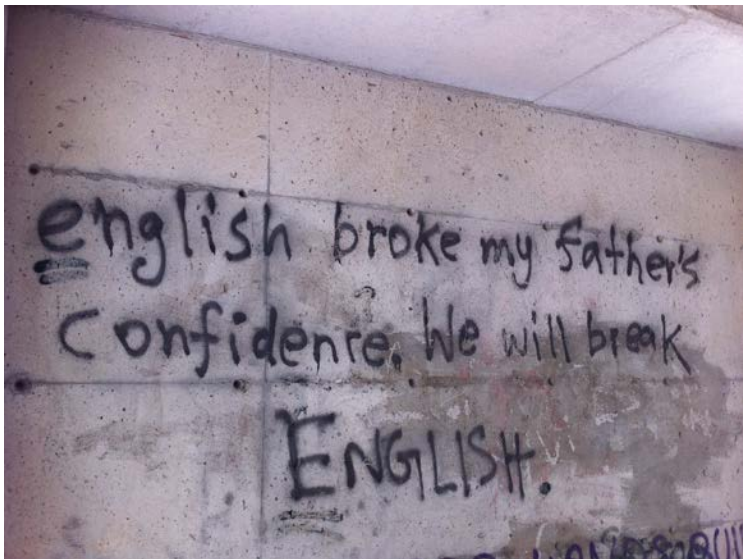 english broke my father's
confidence. We will break
ENGLISH.